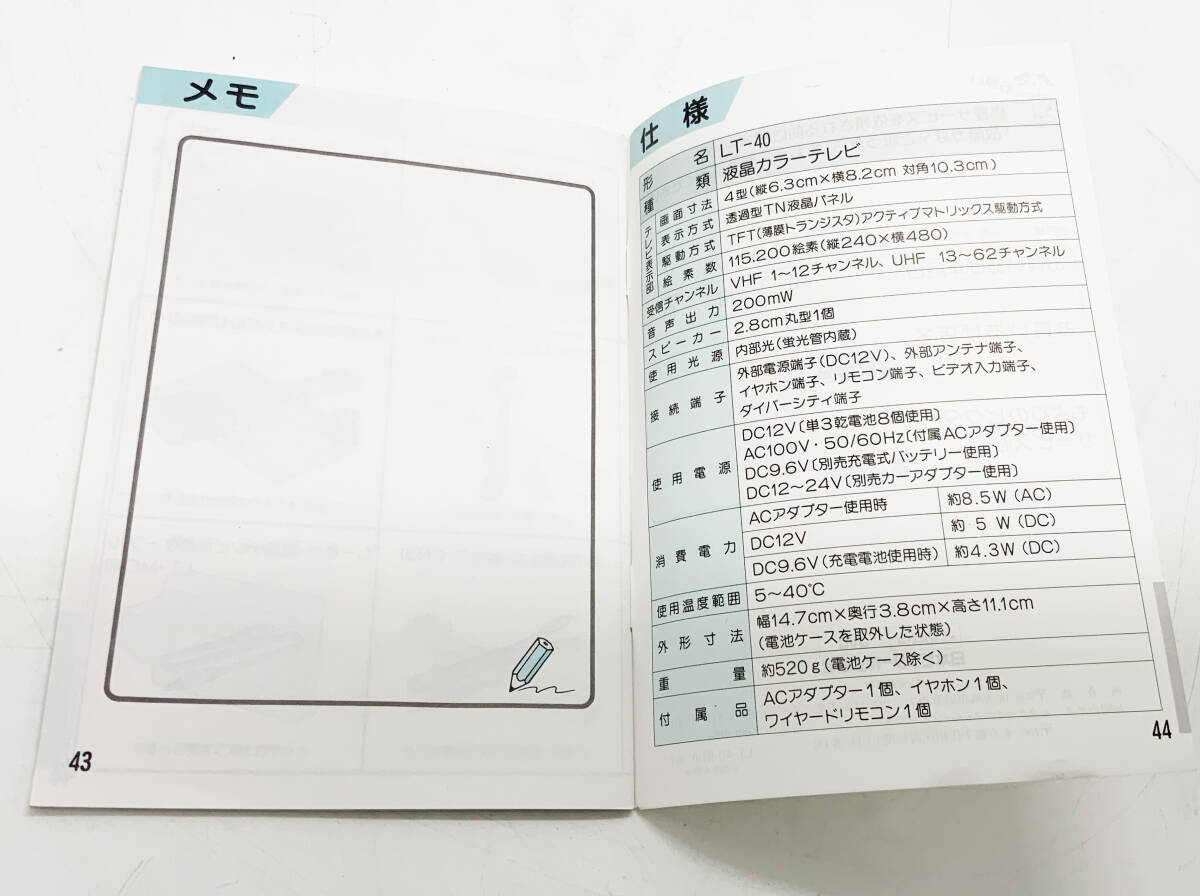 メモ
43
仕様
形名 LT-40
種類 液晶カラーテレビ
テレビ表示部
画面寸法 4型(縦6.3cm×横8.2cm 対角10.3cm)
表示方式 透過型TN液晶パネル
駆動方式 TFT(薄膜トランジスタ)アクティブマトリックス駆動方式
絵素数 115,200絵素(縦240×横480)
受信チャンネル VHF 1～12チャンネル、UHF 13～62チャンネル
音声出力 200mW
スピーカー 2.8cm丸型1個
使用光源 内部光(蛍光管内蔵)
接続端子 外部電源端子(DC12V)、外部アンテナ端子、
イヤホン端子、リモコン端子、ビデオ入力端子、
ダイバーシティ端子
使用電源 DC12V〔単3乾電池8個使用〕
AC100V・50/60Hz〔付属ACアダプター使用〕
DC9.6V〔別売充電式バッテリー使用〕
DC12～24V〔別売カーアダプター使用〕
消費電力 ACアダプター使用時 約8.5W(AC)
DC12V 約 5 W(DC)
DC9.6V(充電電池使用時) 約4.3W(DC)
使用温度範囲 5～40℃
外形寸法 幅14.7cm×奥行3.8cm×高さ11.1cm
(電池ケースを取外した状態)
重量 約520g(電池ケース除く)
付属品 ACアダプター1個、イヤホン1個、
ワイヤードリモコン1個
44